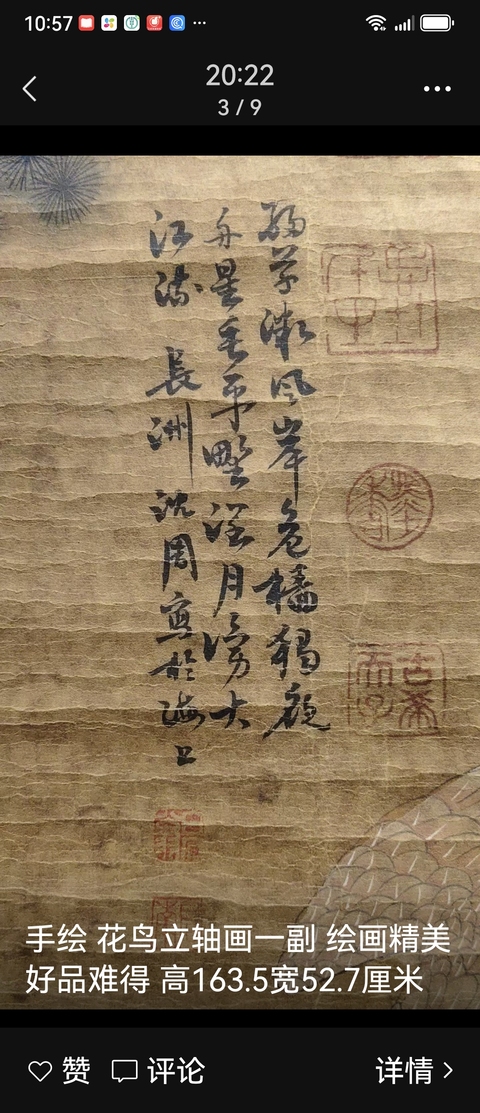 10:57
20:22
3 / 9
細草微风岸危檣獨夜
舟星垂平野濶月湧大
江流 長洲沈周寫於海上
古希天子
手绘 花鸟立轴画一副 绘画精美
好品难得 高163.5宽52.7厘米
赞 评论 详情